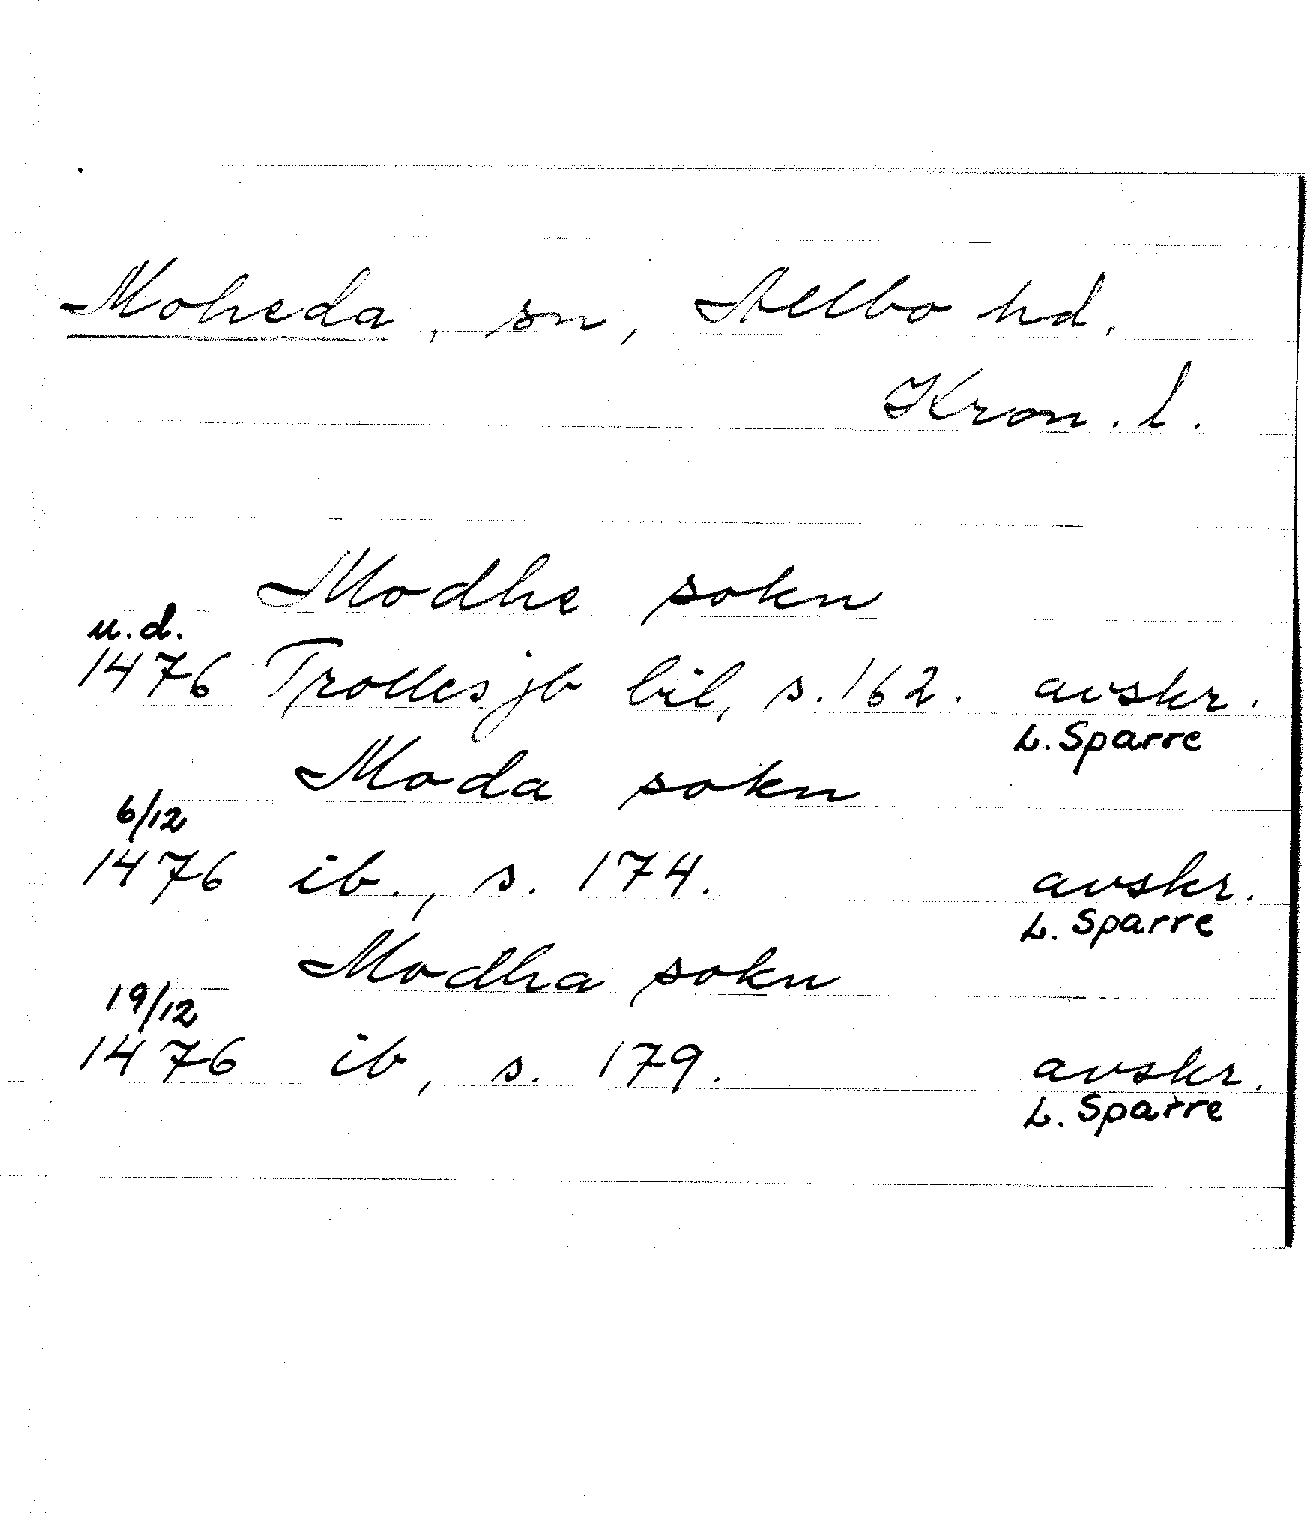 Moheda, sn, Allbo hd.
Kron. l.
Modhe sokn
u.d.
1476 Trolles jb bil, s. 162. avskr.
L. Sparre
Moda sokn
6/12
1476 ib., s. 174. avskr.
L. Sparre
Modha sokn
19/12
1476 ib, s. 179. avskr.
L. Sparre